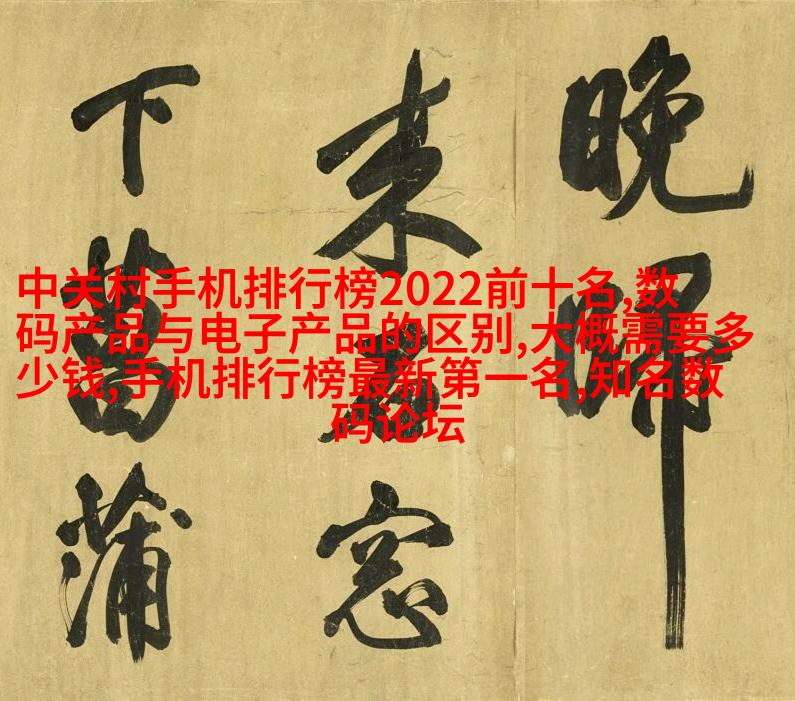 晚歸
来窓
下菖蒲
中关村手机排行榜2022前十名,数
码产品与电子产品的区别,大概需要多
少钱,手机排行榜最新第一名,知名数
码论坛